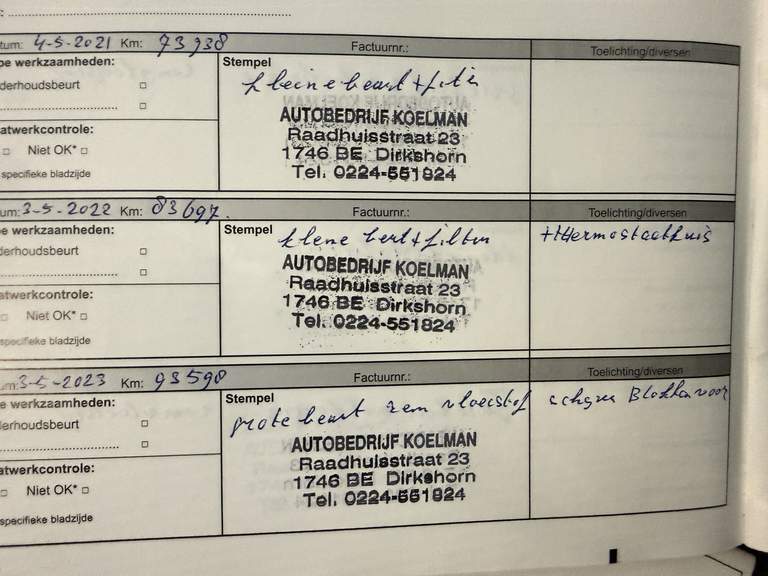 tum: 4-5-2021 Km: 73938 Factuurnr.: Toelichting/diversen
pe werkzaamheden: Stempel
derhoudsbeurt □ kleine beurt + filter
□
AUTOBEDRIJF KOELMAN
Raadhuisstraat 23
1746 BE Dirkshorn
Tel. 0224-551824
atwerkcontrole:
□ Niet OK* □
specifieke bladzijde
um: 3-5-2022 Km: 83697. Factuurnr.: Toelichting/diversen
e werkzaamheden: Stempel
derhoudsbeurt □ kleine beurt + filter + thermostaathuis
□
AUTOBEDRIJF KOELMAN
Raadhuisstraat 23
1746 BE Dirkshorn
Tel. 0224-551824
atwerkcontrole:
□ Niet OK* □
specifieke bladzijde
um: 3-5-2023 Km: 93598 Factuurnr.: Toelichting/diversen
e werkzaamheden: Stempel
derhoudsbeurt □ grote beurt rem vloeistof schijven Blokken voor
□
AUTOBEDRIJF KOELMAN
Raadhuisstraat 23
1746 BE Dirkshorn
Tel. 0224-551824
atwerkcontrole:
□ Niet OK* □
specifieke bladzijde